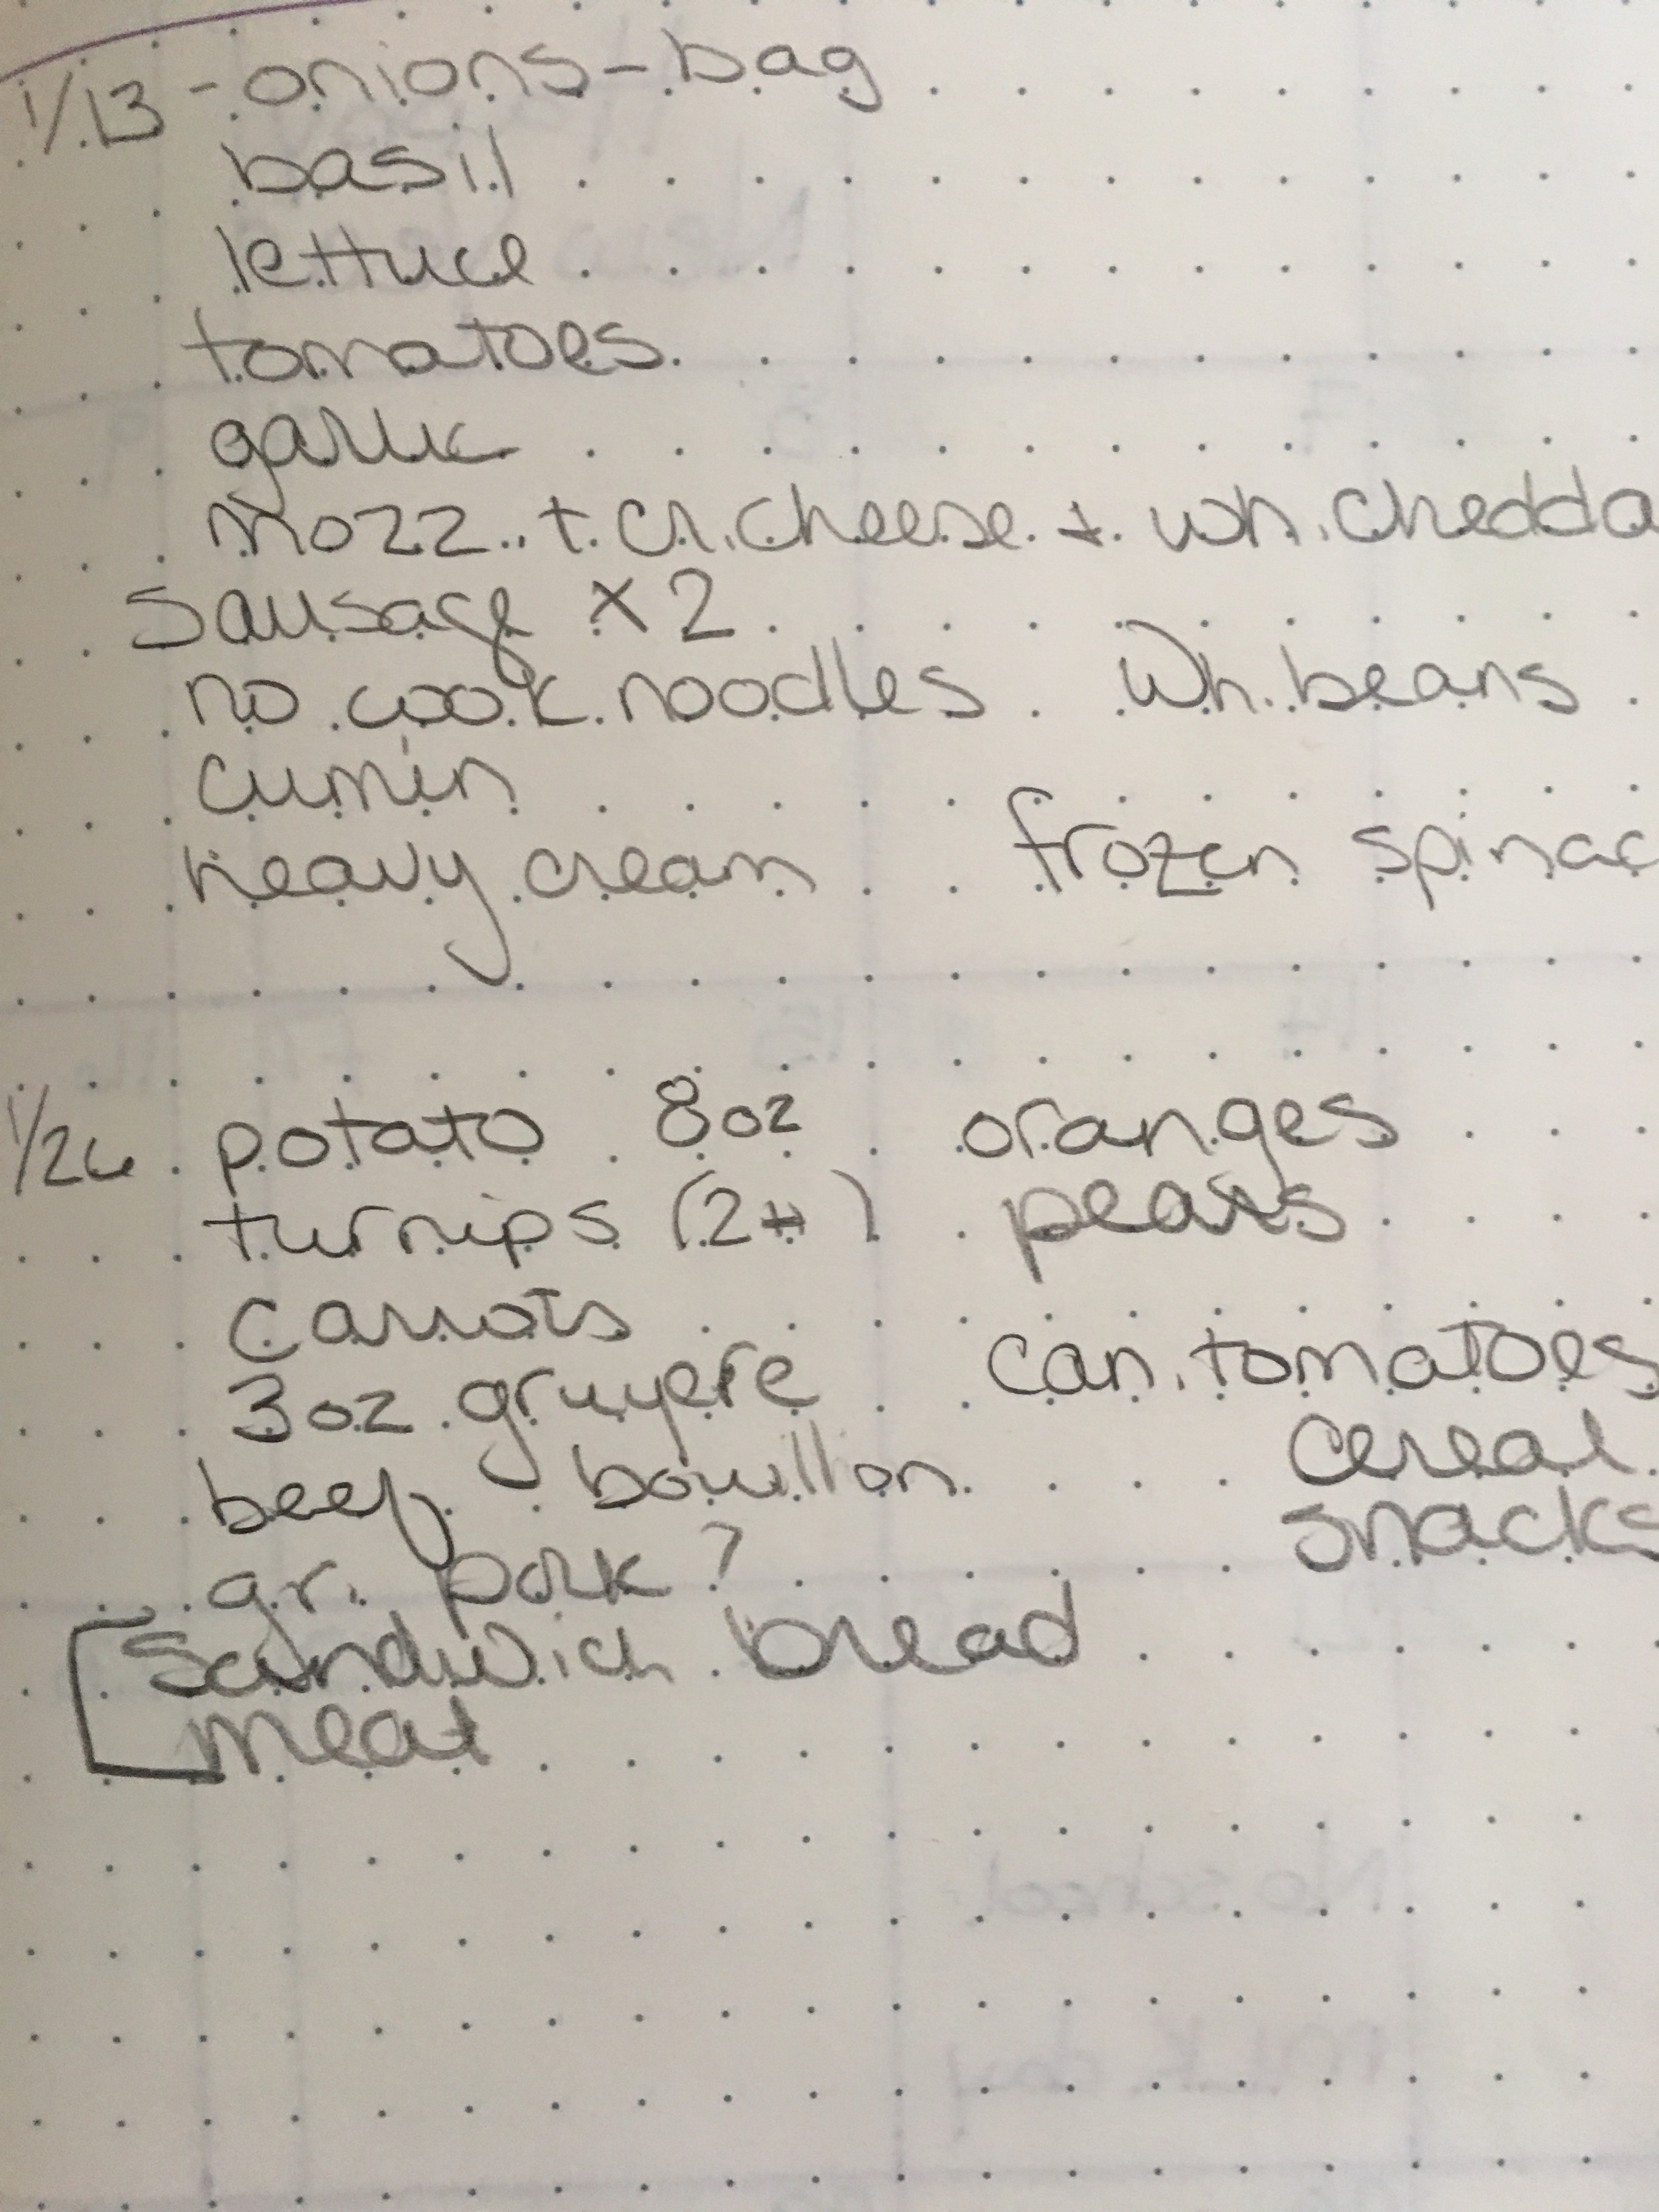 1/13 - onions - bag
basil
lettuce
tomatoes
garlic
mozz. + cr. cheese + wh. chedda
sausage x2
no cook noodles wh. beans
cumin
heavy cream frozen spinac
1/26 potato 8oz oranges
turnips (2#) pears
carrots
3oz gruyere can. tomatoes
cereal
beef bouillon
snacks
gr. pork?
sandwich bread
meat
No school
MLK day